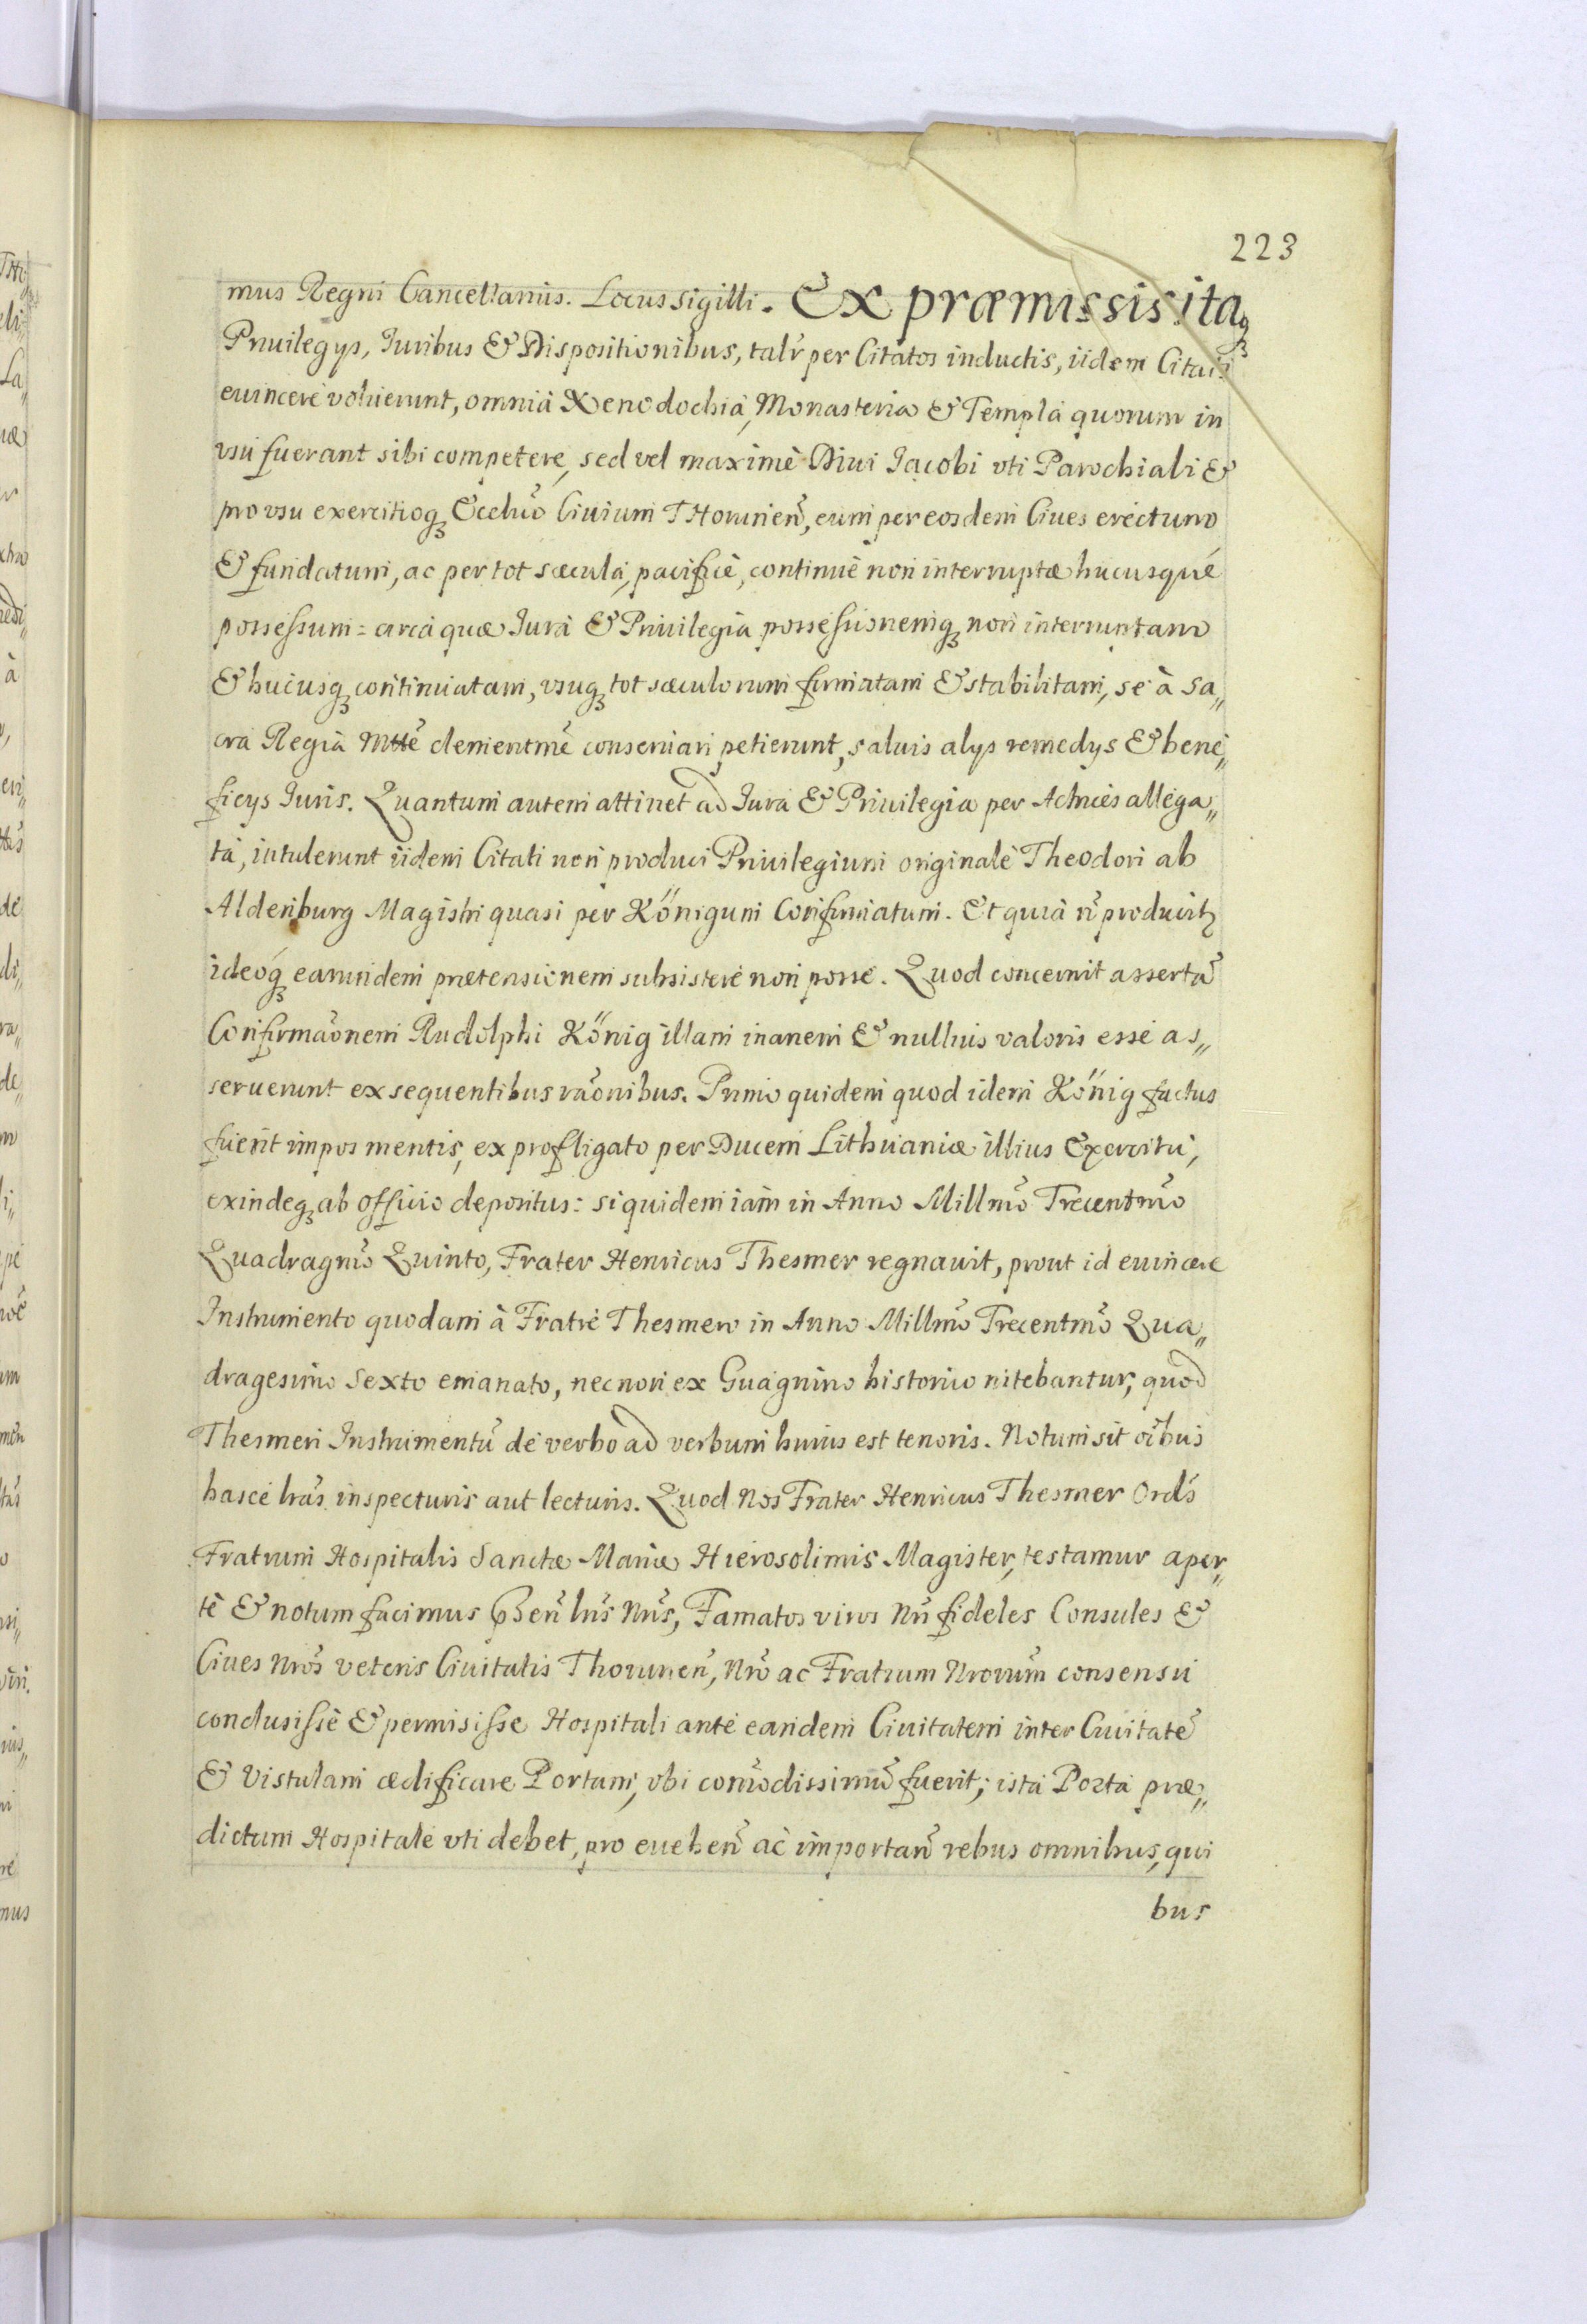 223
mus Regni Cancellarius. Locus sigilli. Ex præmissis itaq3
Priuilegys, Iuribus & Dispositionibus, talr̃ per Citatos inductis, iidem Citati
euincere voluerunt, omnia Xenodochia, Monasteria & Templa quorum in
vsu fuerant sibi competere, sed vel maximè Diui Iacobi vti Parochiali &
pro vsu exercitioq3 Ecclũo Ciuium Thorunien̄, cum per eosdem Ciues erectum
& fundatum, ac per tot sæcula, pacificè, continuè non interruptæ hucusque
possessum: circa quæ Iura & Priuilegia possessionemq3 non interruptam
& hucusq3 continuatam, vsuq3 tot sæculorum firmatam & stabilitam, se à Sa„
cra Regia Mtte clementm̃e conseruari petierunt, saluis alys remedys & bene„
ficys Iuris. Quantum autem attinet ad Iura & Priuilegia per Actrices allega„
ta, intulerunt iidem Citati non produci Priuilegium originale Theodori ab
Aldenburg Magistri quasi per Königum Confirmatum. Et quia ñ producit̃
ideoq3 earumdem prætensionem subsistere non posse. Quod concernit assertã
Confirmãonem Rudolphi König illam inanem & nullius valoris esse as„
seruerunt ex sequentibus rãonibus. Primo quidem quod idem König factus
fuerit impos mentis, ex profligato per Ducem Lithuaniæ illius Exercitu,
exindeq3 ab officio depositus: siquidem iam in Anno Millmõ Trecentmõ
Quadragmõ Quinto, Frater Henricus Thesmer regnauit, prout id euincere
Instrumento quodam à Fratre Thesmero in Anno Millmõ Trecentmõ Qua„
dragesimo Sexto emanato, necnon ex Guagnino historico nitebantur, quod
Thesmeri Instrumentũ de verbo ad verbum huius est tenoris. Notum sit oĩbus
hasce lrãs inspecturis aut lecturis. Quod Nos Frater Henricus Thesmer Ordĩs
Fratrum Hospitalis Sanctæ Mariæ Hierosolimis Magister, testamur aper„
tè & notum facimus Pñ lrĩs Nrĩs, Famatos viros Nrĩ fideles Consules &
Ciues Nrõs veteris Ciuitatis Thorunen̄, Nrõ ac Fratrum Nrorum consensu
conclusisse & permisisse Hospitali ante eandem Ciuitatem inter Ciuitatẽ
& Vistulam ædificare Portam, vbi com̃odissimũ fuerit; ista Porta præ„
dictum Hospitale vti debet, pro eueheñ ac importañ rebus omnibus, qui
bus